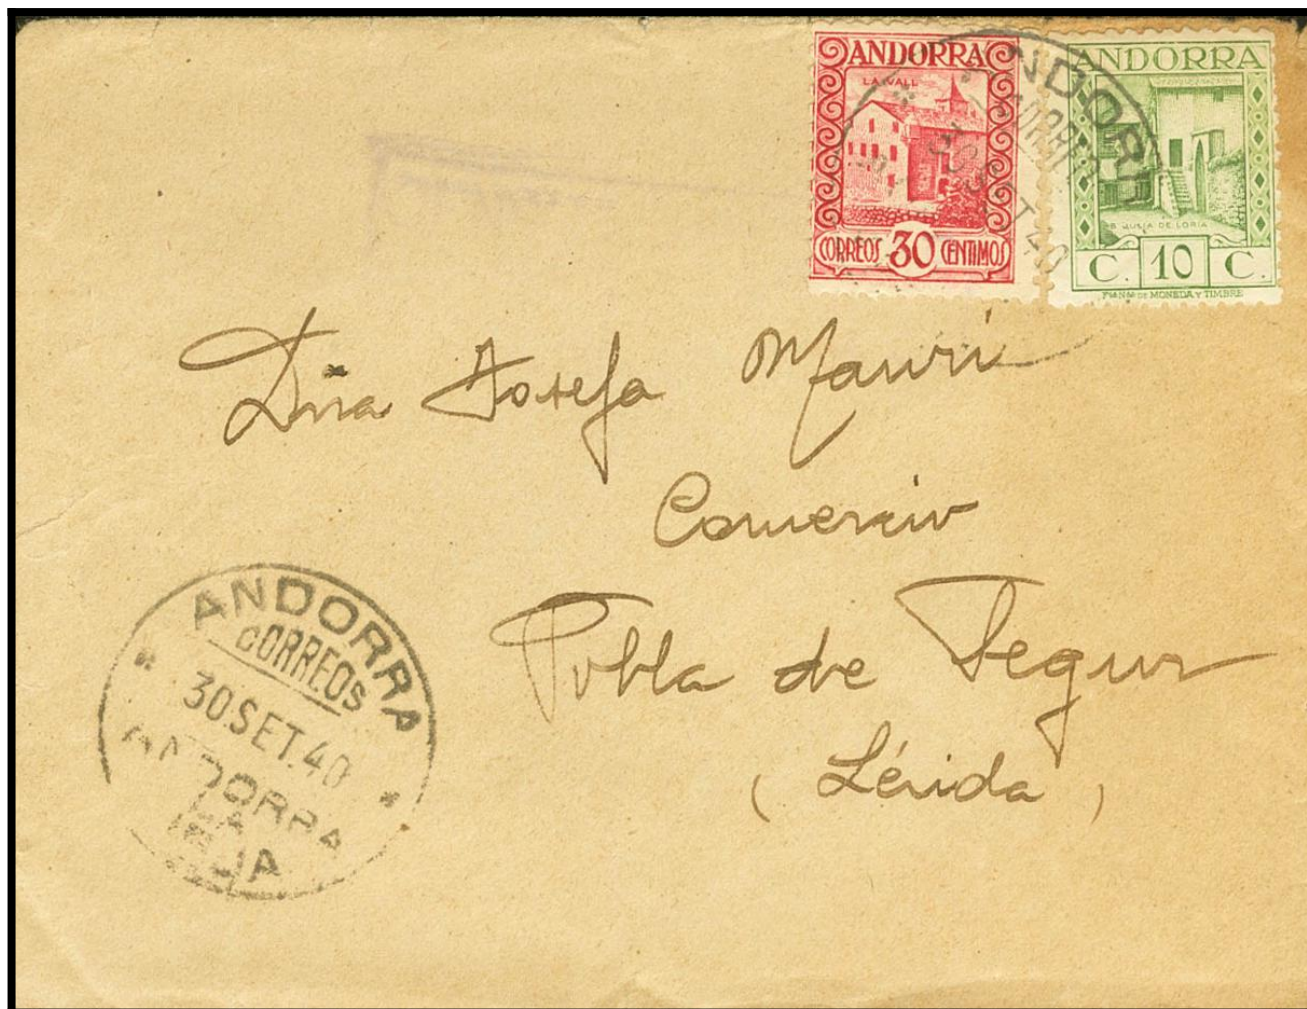 ANDORRA
LA VALL
CORREOS 30 CENTIMOS
ANDORRA
JULIA DE LORIA
C. 10 C.
MONEDA Y TIMBRE
30 SET 40
Dña Josefa Mauri
Comercio
Pobla de Segur
(Lérida)
ANDORRA
CORREOS
30.SET.40
ANDORRA
LA
VIEJA